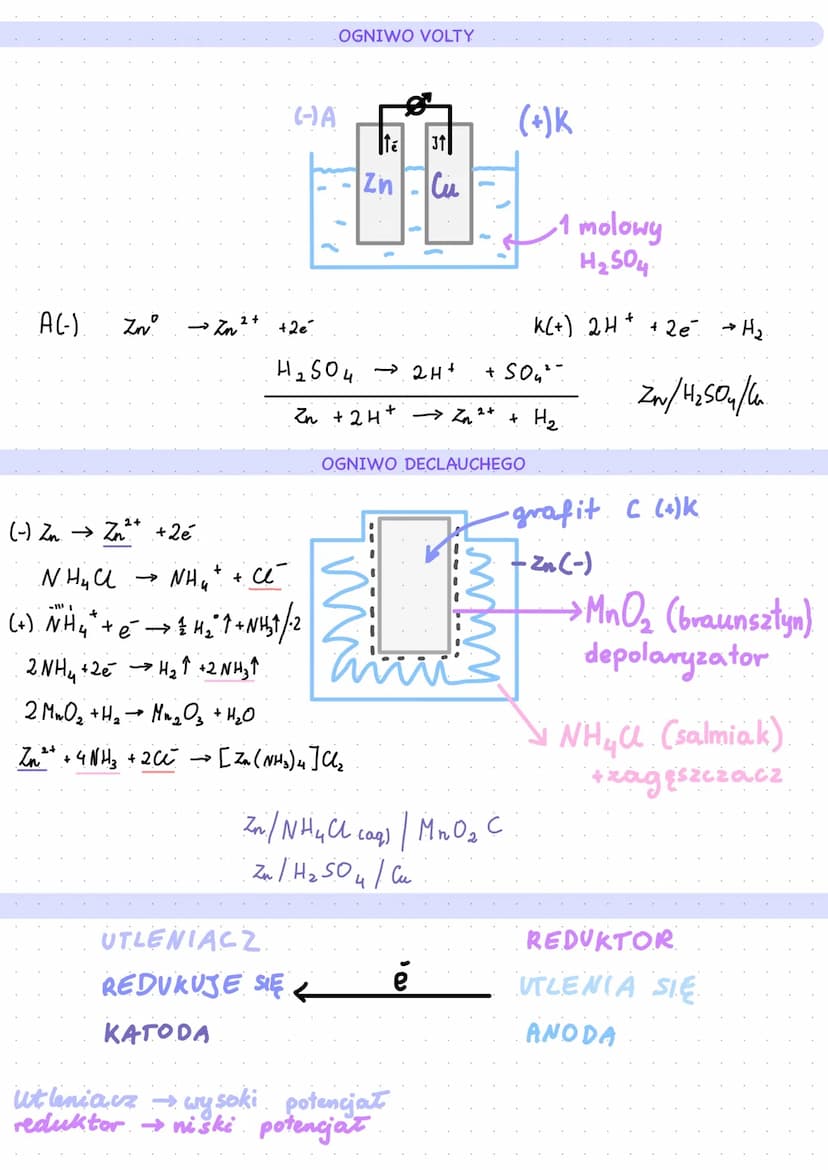 OGNIWO VOLTY
(-)A
(+)K
↑ē
J↑
Zn
Cu
1 molowy
H₂SO₄
A(-) Zn⁰ → Zn²⁺ +2e⁻
K(+) 2H⁺ + 2e⁻ → H₂
H₂SO₄ → 2H⁺ + SO₄²⁻
Zn + 2H⁺ → Zn²⁺ + H₂
Zn/H₂SO₄/Cu
OGNIWO DECLAUCHEGO
(-) Zn → Zn²⁺ +2ē
NH₄Cl → NH₄⁺ + Cl⁻
(+) NH₄⁺ + e⁻ → ½ H₂⁰↑ + NH₃↑/·2
2NH₄ +2e⁻ → H₂↑ +2NH₃↑
2MnO₂ + H₂ → Mn₂O₃ + H₂O
Zn²⁺ + 4NH₃ + 2Cl⁻ → [Zn(NH₃)₄]Cl₂
grafit C (+)K
-Zn(-)
MnO₂ (braunsztyn)
depolaryzator
NH₄Cl (salmiak)
+zagęszczacz
Zn/NH₄Cl(aq) | MnO₂ C
Zn/H₂SO₄/Cu
UTLENIACZ
REDUKUJE SIĘ
KATODA
ē
REDUKTOR
UTLENIA SIĘ
ANODA
utleniacz → wysoki potencjał
reduktor → niski potencjał